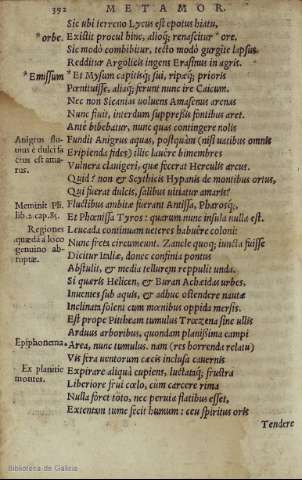 392 METAMOR.
Sic ubi terreno Lycus est epotus hiatu,
*orbe. Existit procul hinc, alioq; renascitur * ore.
Sic modò combibitur, tecto modò gurgite lapsus
Redditur Argolicis ingens Erasinus in agris.
*Emissum * Et Mysum capitisq; sui, ripæq; prioris
Pœnituisse, aliaq; ferunt nunc ire Caicum.
Nec non Sicanias voluens Amasenus arenas
Nunc fluit, interdum suppressis fontibus aret.
Ante bibebatur, nunc quas contingere nolis
Anigrus flu- Fundit Anigrus aquas, postquàm (nisi uatibus omnis
uius è dulci fa- Eripienda fides) illic lauêre bimembres
ctus est ama- Vulnera clauigeri, quæ fecerat Herculis arcus.
rus. Quid? non & Scythicis Hypanis de montibus ortus,
Qui fuerat dulcis, salibus uitiatur amaris?
Meminit Pli. Fluctibus ambitæ fuerant Antissa, Pharosq;,
lib. 2. cap. 85. Et Phœnissa Tyros: quarum nunc insula nulla est.
Regiones Leucada continuam ueteres habuere coloni:
quædã à loco Nunc freta circumeunt. Zancle quoq; iuncta fuisse
genuino ab- Dicitur Italiæ, donec confinia pontus
ruptæ. Abstulit, & media tellurem reppulit unda.
Si quæris Helicen, & Buran Achaidas urbes,
Inuenies sub aquis, & adhuc ostendere nautæ
Inclinata solent cum mœnibus oppida mersis.
Est prope Pittheam tumulus Trœzena sine ullis
Arduus arboribus, quondam planißima campi
Epiphonema. Area, nunc tumulus. nam (res horrenda relatu)
Vis fera uentorum cæcis inclusa cauernis
Ex planitie Expirare aliquà cupiens, luctataq; frustra
montes. Liberiore frui cœlo, cum carcere rima
Nulla foret toto, nec peruia flatibus esset,
Extentam tume fecit humum: ceu spiritus oris
Tendere
Biblioteca de Galicia